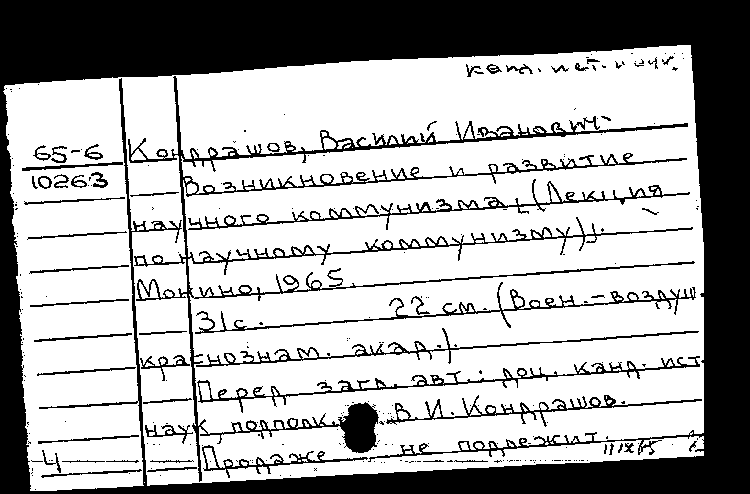 канд. ист. наук.
65-6 Кондрашов, Василий Иванович
10263 Возникновение и развитие
научного коммунизма. (Лекция
по научному коммунизму).
Монино, 1965.
31 с. 22 см. (Воен.-воздуш.
краснознам. акад.).
Перед загл. авт.: доц. канд. ист.
наук, подполк. В. И. Кондрашов.
Ч Продаже не подлежит.